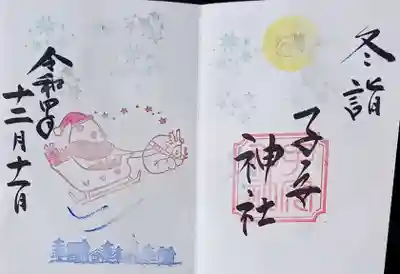 冬詣
子安
神社
令和四年
十二月十一日